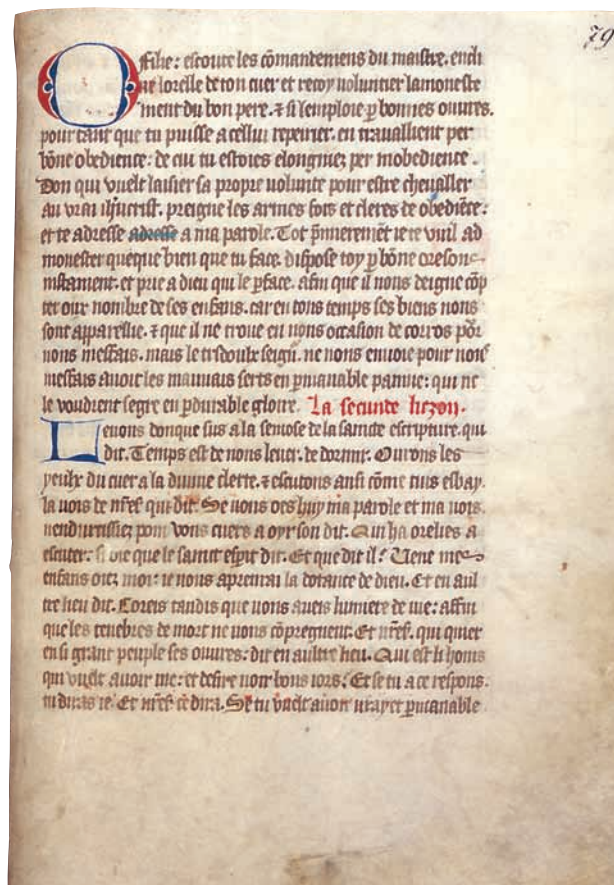 79
O filie : escoute les cōmandemens du maistre. encli
ne lorelle de ton cuer et recoy voluntier lamoneste
ment du bon pere. ⁊ si lemploie ꝑ bonnes ouures.
pour tant que tu puisse a cellui repeirier. en travallient per
bōne obedience : de cui tu estoies elongniez per inobedience.
Don qui vuelt laisier sa propre volunte pour estre chevallier
au vrai ihūcrist. preigne les armes fors et cleres de obediēce :
et te adresse adresse a ma parole. Tot p̄mieremēt ie te vuil ad
monester queque bien que tu face. dispose toy ꝑ bōne oreson
instament. et prie a dieu qui le ꝑface. afin que il nous deigne cōp
ter our nombre de ses enfans. car en tous temps ses biens nous
sont apparellie. ⁊ que il ne troue en nous occasion de corros por
nous meffais. mais le tresdoulx seign̄. ne nous enuoie pour nous
meffais auoir les mauuais sers en ꝑmanable painne : qui ne
le voudrent segre en ꝑdurable gloire. La secunde liczon.
Leuons donque sus a la semose de la saincte escripture. qui
dit. Temps est de nous leuer. de dormir. Ourons les
yeulx du cuer a la diuine clerte. ⁊ escutons ansi cōme tuis esbay.
la vois de nr̄eſ qui dit. Se vous oes huy ma parole et ma vois.
nendurcissiez point vous cuers a oyr son dit. Qui ha orelies a
escuter : si oie que le sainct esp̄it dit. Et que dit il ? Uene mes
enfans oiez moi : ie nous aprenrai la dotance de dieu. Et en aul
tre lieu dit. Cores tandis que vous aueis lumiere de vie : affin
que les tenebres de mort ne vous cōpregnent. Et nr̄eſ. qui quier
en si grant peuple ses ouures : dit en aultre lieu. Qui est li homs
qui vuelt auoir vie : et desire veoir bons iors ? Et se tu a ce respons.
tu diras ie. Et nr̄eſ te dira. Se tu vuelt auoir vray et ꝑmanable